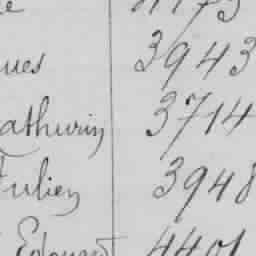 ues 3943
athurin 3714
Julien 3948
Edouard 4401